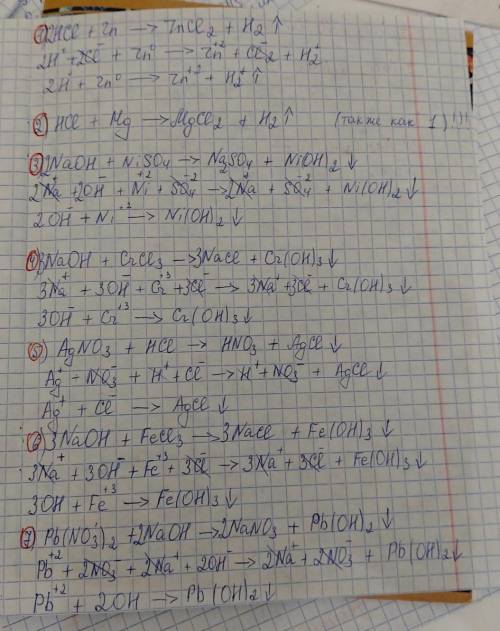 1) 2HCl + Zn → ZnCl2 + H2 ↑
2H⁺ + 2Cl⁻ + Zn⁰ → Zn⁺² + Cl⁻2 + H2⁺
2H⁺ + Zn⁰ → Zn⁺² + H2⁺ ↑
2) HCl + Mg → MgCl2 + H2 ↑ (также как 1)!!!
3) 2NaOH + NiSO4 → Na2SO4 + Ni(OH)2 ↓
2Na⁺ + 2OH⁻ + Ni⁺² + SO4⁻² → 2Na⁺ + SO4⁻² + Ni(OH)2 ↓
2OH + Ni⁺² → Ni(OH)2 ↓
4) 3NaOH + CrCl3 → 3NaCl + Cr(OH)3 ↓
3Na⁺ + 3OH⁻ + Cr⁺³ + 3Cl⁻ → 3Na⁺ + 3Cl⁻ + Cr(OH)3 ↓
3OH⁻ + Cr⁺³ → Cr(OH)3 ↓
5) AgNO3 + HCl → HNO3 + AgCl ↓
Ag⁺ - NO3⁻ + H⁺ + Cl⁻ → H⁺ + NO3⁻ + AgCl ↓
Ag⁺ + Cl⁻ → AgCl ↓
6) 3NaOH + FeCl3 → 3NaCl + Fe(OH)3 ↓
3Na⁺ + 3OH⁻ + Fe⁺³ + 3Cl⁻ → 3Na⁺ + 3Cl⁻ + Fe(OH)3 ↓
3OH + Fe⁺³ → Fe(OH)3 ↓
7) Pb(NO3)2 + 2NaOH → 2NaNO3 + Pb(OH)2 ↓
Pb⁺² + 2NO3⁻ + 2Na⁺ + 2OH⁻ → 2Na⁺ + 2NO3⁻ + Pb(OH)2 ↓
Pb⁺² + 2OH → Pb(OH)2 ↓